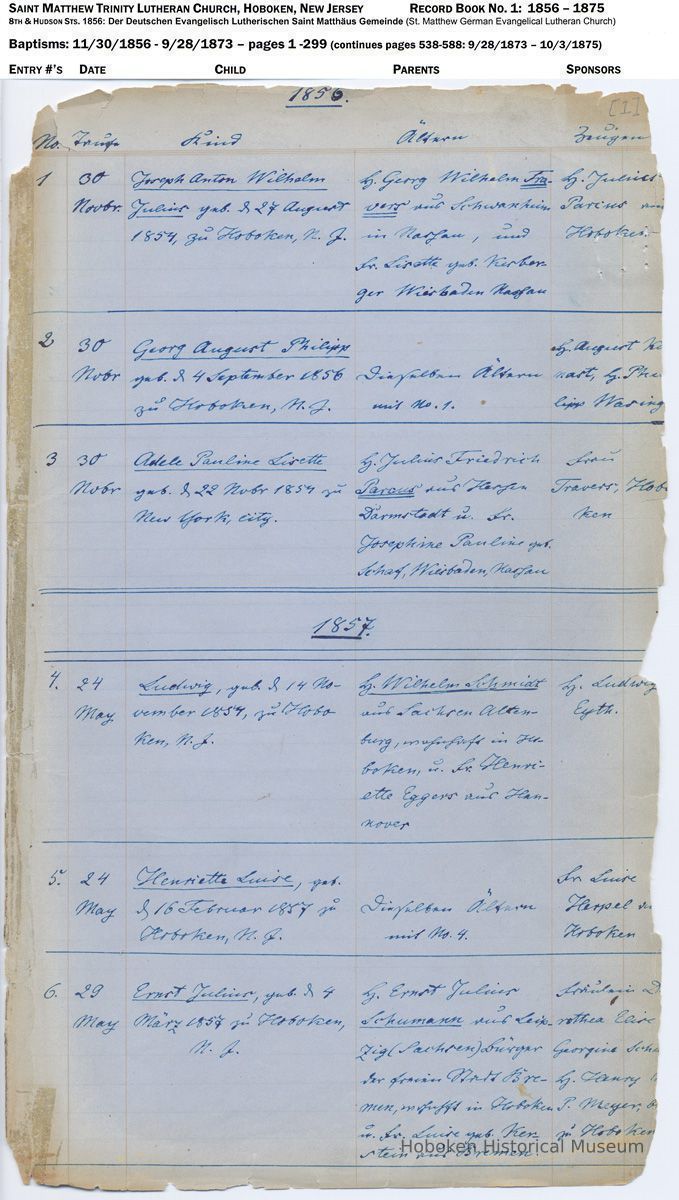 SAINT MATTHEW TRINITY LUTHERAN CHURCH, HOBOKEN, NEW JERSEY RECORD BOOK NO. 1: 1856 – 1875
8TH & HUDSON STS. 1856: Der Deutschen Evangelisch Lutherischen Saint Matthäus Gemeinde (St. Matthew German Evangelical Lutheran Church)
Baptisms: 11/30/1856 - 9/28/1873 – pages 1 -299 (continues pages 538-588: 9/28/1873 – 10/3/1875)
ENTRY #'S DATE CHILD PARENTS SPONSORS
1856.
[1]
No. Taufe Kind Ältern Zeugen
1 30 Joseph Anton Wilhelm H. Georg Wilhelm Tra- H. Julius
Novbr. Julius geb. d 27 August vers aus Schwanheim Parcus
1854, zu Hoboken, N. J. in Nassau, und Hoboken
Fr. Lisette geb. Kerber-
ger Wiesbaden Nassau
2 30 Georg August Philipp H. August
Nobr geb. d 4 September 1856 Dieselben Ältern nast, H. Phi
zu Hoboken, N. J. mit No. 1. lipp
3 30 Adele Pauline Lisette H. Julius Friedrich Frau
Nobr geb. d 22 Nobr 1854 zu Parcus aus Hessen Travers, Hobo
New York, city. Darmstadt u. Fr. ken
Josephine Pauline geb.
Schaf, Wiesbaden, Nassau
1857.
4. 24 Ludwig, geb. d 14 No- H. Wilhelm Schmidt H. Ludwig
May vember 1854, zu Hobo aus Sachsen Alten- Eyth.
ken, N. J. burg, wohnhaft in Ho-
boken, u. Fr. Henri-
ette Eggers aus Han-
nover
5. 24 Henriette Luise, geb. Fr. Luise
May d 16 Februar 1857 zu Dieselben Ältern Herpel
Hoboken, N. J. mit No. 4. Hoboken
6. 29 Ernst Julius, geb. d 4 H. Ernst Julius Fräulein
May März 1857 zu Hoboken, Schumann aus Leip- rothea Elise
N. J. zig (Sachsen) Bürger Georgine
der freien Stadt Bre- H. Henry
men, wohnhft in Hoboken P. Meyer,
u. Fr. Luise geb. Ken- zu Hoboken
stein aus Bremen.
Hoboken Historical Museum